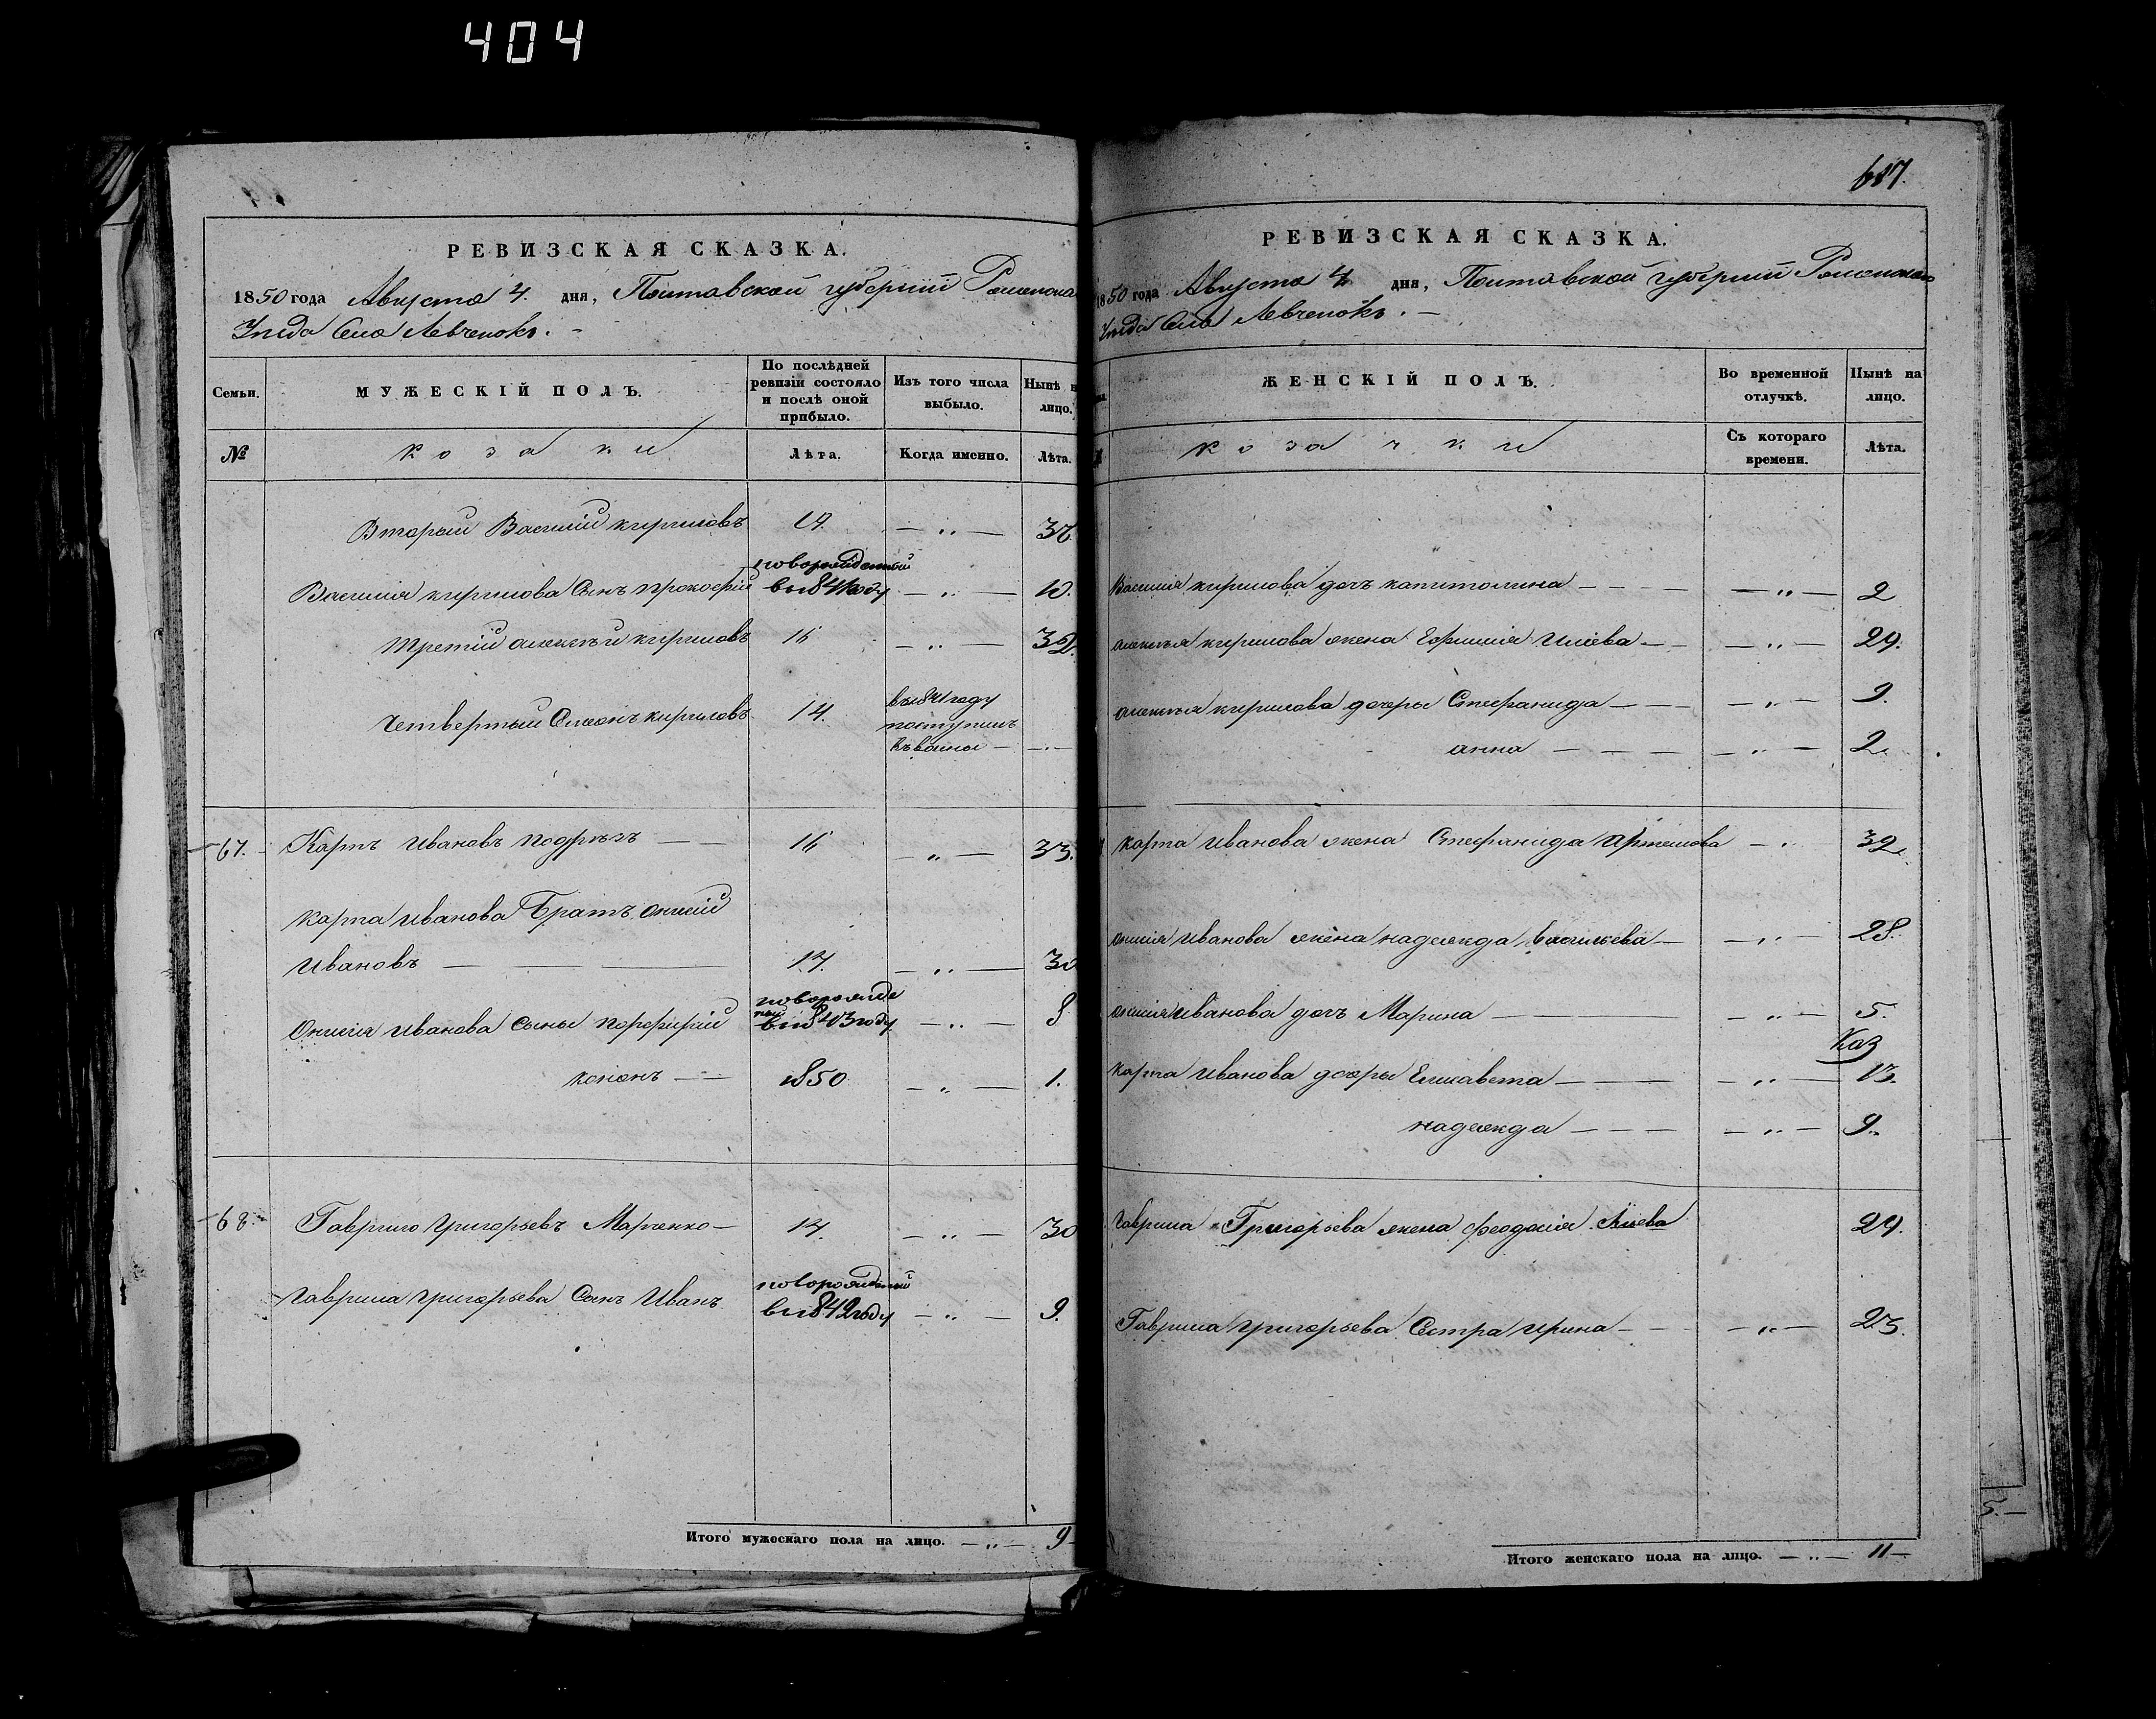 404
РЕВИЗСКАЯ СКАЗКА.
1850 года Августа 4. дня, Полтавской губерніи
Уезда Села Левченокъ. -
Семьи. МУЖЕСКІЙ ПОЛЪ. По послѣдней ревизіи состояло и послѣ оной прибыло. Изъ того числа выбыло. Нынѣ на лицо.
№ козаки Лѣта. Когда именно. Лѣта.
Вторый Василій кириловъ — „ —
новорожденный
Василія кирилова Сынъ прокофій в 1841 году — „ — 10.
третій алексѣй кириловъ 16 — „ — 32.
въ 1841 году
Четвертый Симонъ кириловъ 14. поступилъ
— „ —
67. Карпъ Ивановъ 16 — „ — 33.
карпа Иванова Братъ онисій
Ивановъ — — — 14. — „ — 30
новорожде
ный
Онисія Иванова Сыны порфирій в 1843 году — „ — 8
кононъ — — 1850 — „ — 1.
68. Гаврило григорьевъ Марченко — 14. — „ — 30
новорожденый
Гаврила григорьева Сынъ Иванъ в 1842 году — „ — 9.
Итого мужескаго пола на лицо. — „ — 9 —
617.
РЕВИЗСКАЯ СКАЗКА.
1850 года Августа 4 дня, Полтавской губерніи Роменскаго
Уезда Села Левченокъ. —
ЖЕНСКІЙ ПОЛЪ. Во временной отлучкѣ. Нынѣ на лицо.
козачки Съ котораго времени. Лѣта.
Василія кирилова дочь капитолина — — — — „ — 2
алексѣя кирилова жена Ефимія — — — „ — 29.
алексѣя кирилова дочери Стефанида — — — — „ — 9.
анна — — — — „ — 2.
карпа Иванова жена Стефанида — „ 32.
онисія Иванова жена надежда Васильева — — „ — 28.
онисія Иванова дочь Марина — — — „ — 5.
Каз
карпа Иванова дочери Елисавета — — — — „ — 13.
надежда — — — — „ — 9.
Гаврила Григорьева жена феодосія 29.
Гаврила григорьева Сестра Ирина — — — „ — 23.
Итого женскаго пола на лицо. — „ — 11 —